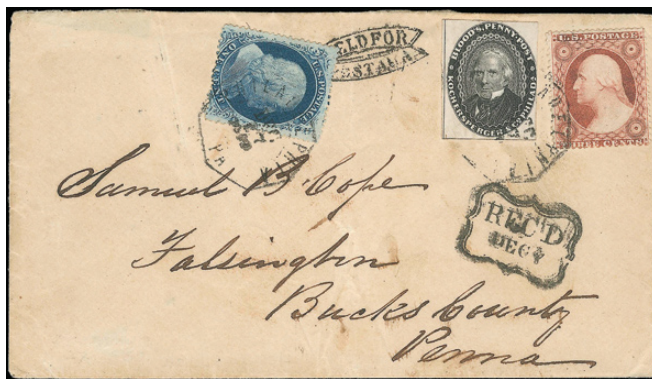 U.S. POSTAGE
ONE CENT
ELD FOR
POSTAGE
BLOOD'S PENNY POST
KOCHERSPERGER & CO. PHILADA
U.S. POSTAGE
THREE CENTS
REC'D
DEC
Samuel B. Cope
Falsington
Bucks County
Penna